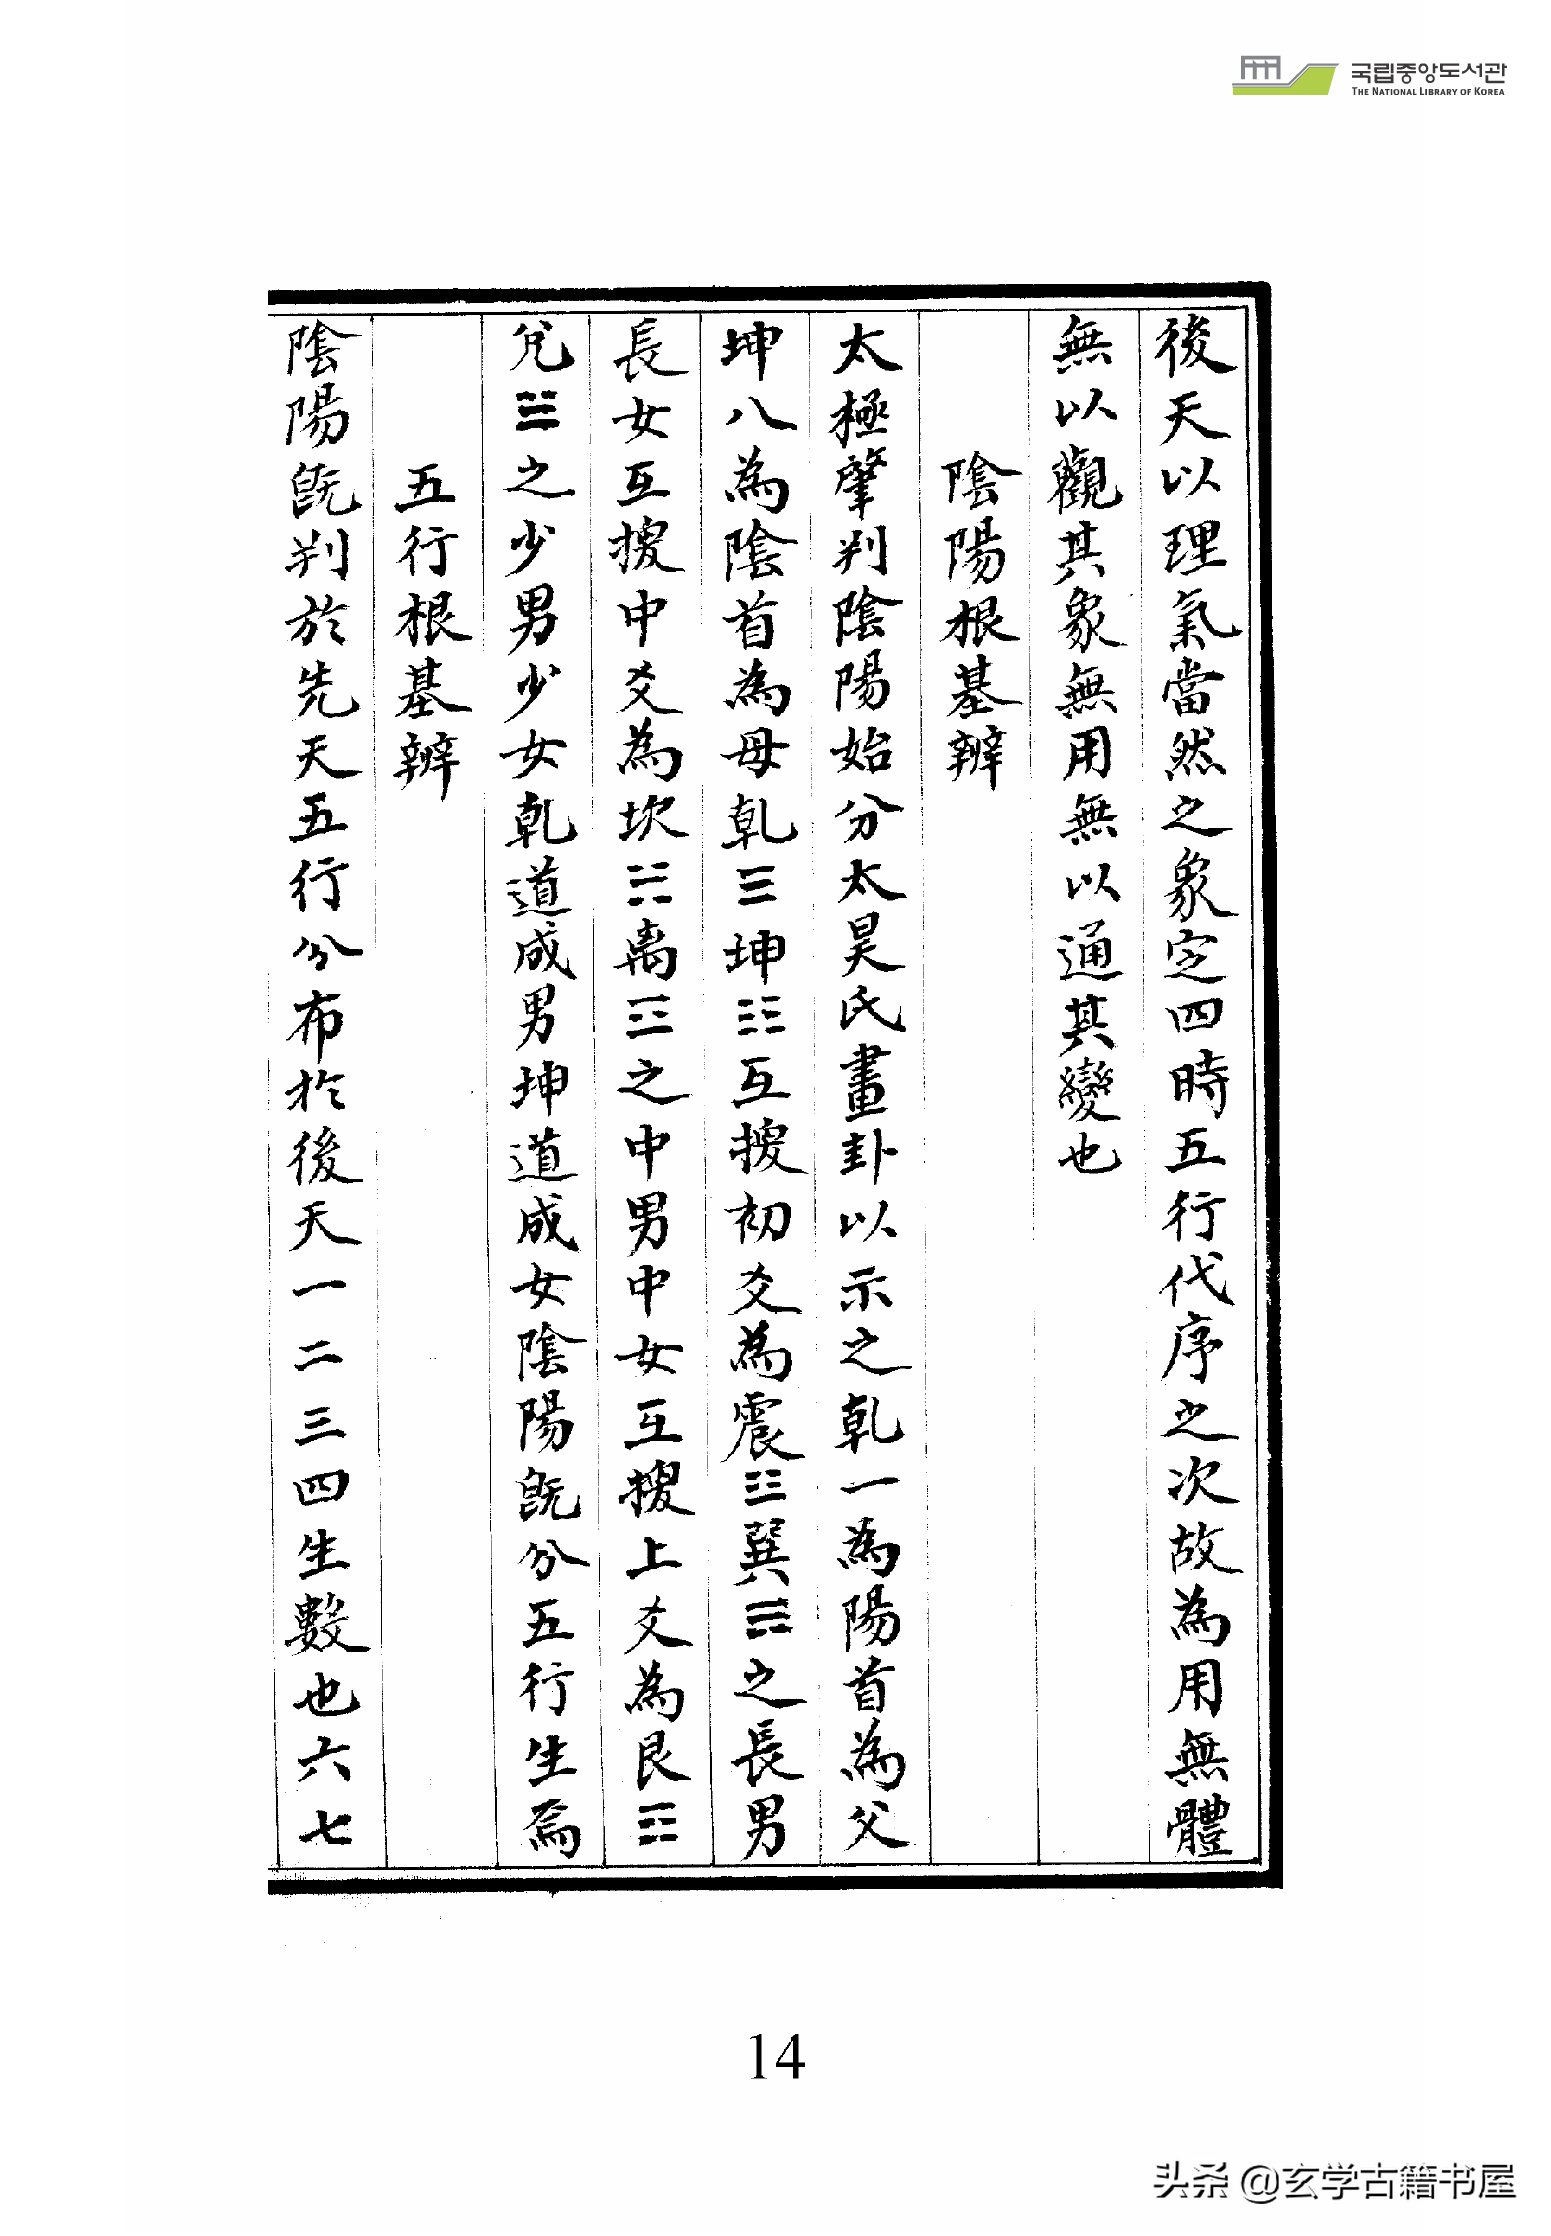 국립중앙도서관
THE NATIONAL LIBRARY OF KOREA
後天以理氣當然之象定四時五行代序之次故為用無體
無以觀其象無用無以通其變也
陰陽根基辨
太極肇判陰陽始分太昊氏畫卦以示之乾一為陽首為父
坤八為陰首為母乾☰坤☷互搜初爻為震☳巽☴之長男
長女互搜中爻為坎☵離☲之中男中女互搜上爻為艮☶
兌☱之少男少女乾道成男坤道成女陰陽既分五行生焉
五行根基辨
陰陽既判於先天五行分布於後天一二三四生數也六七
14
头条 @玄学古籍书屋